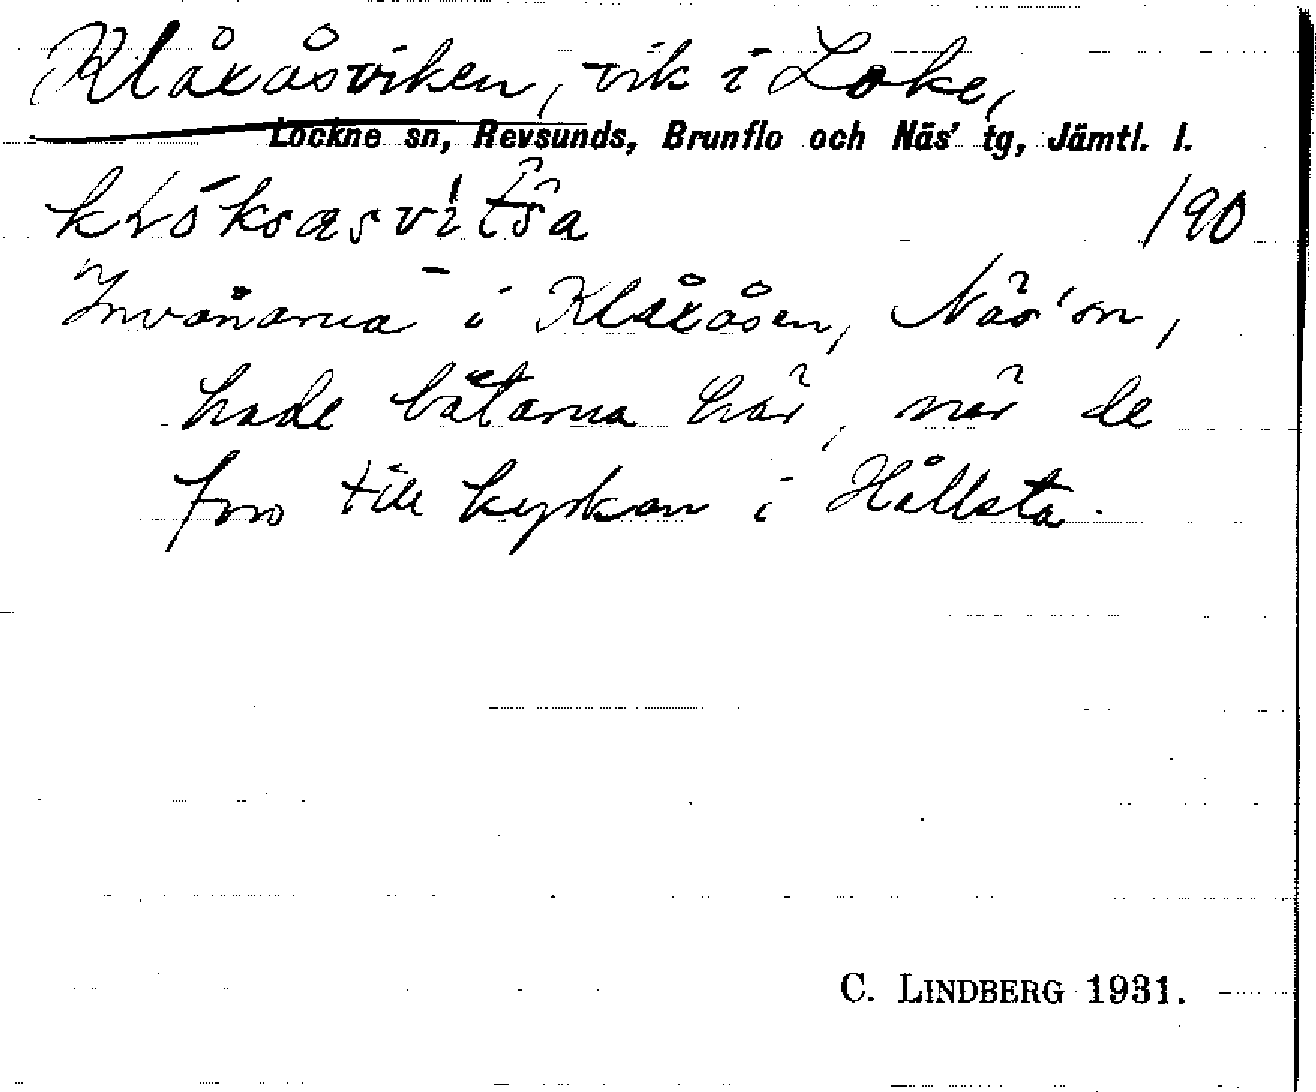 Klåxåsviken, vik i Loke,
Lockne sn, Revsunds, Brunflo och Näs' tg, Jämtl. l.
190
Invånarna i Klåxåsen, Näs' sn,
hade båtarna här, när de
foro till kyrkan i Hållsta.
C. LINDBERG 1931.